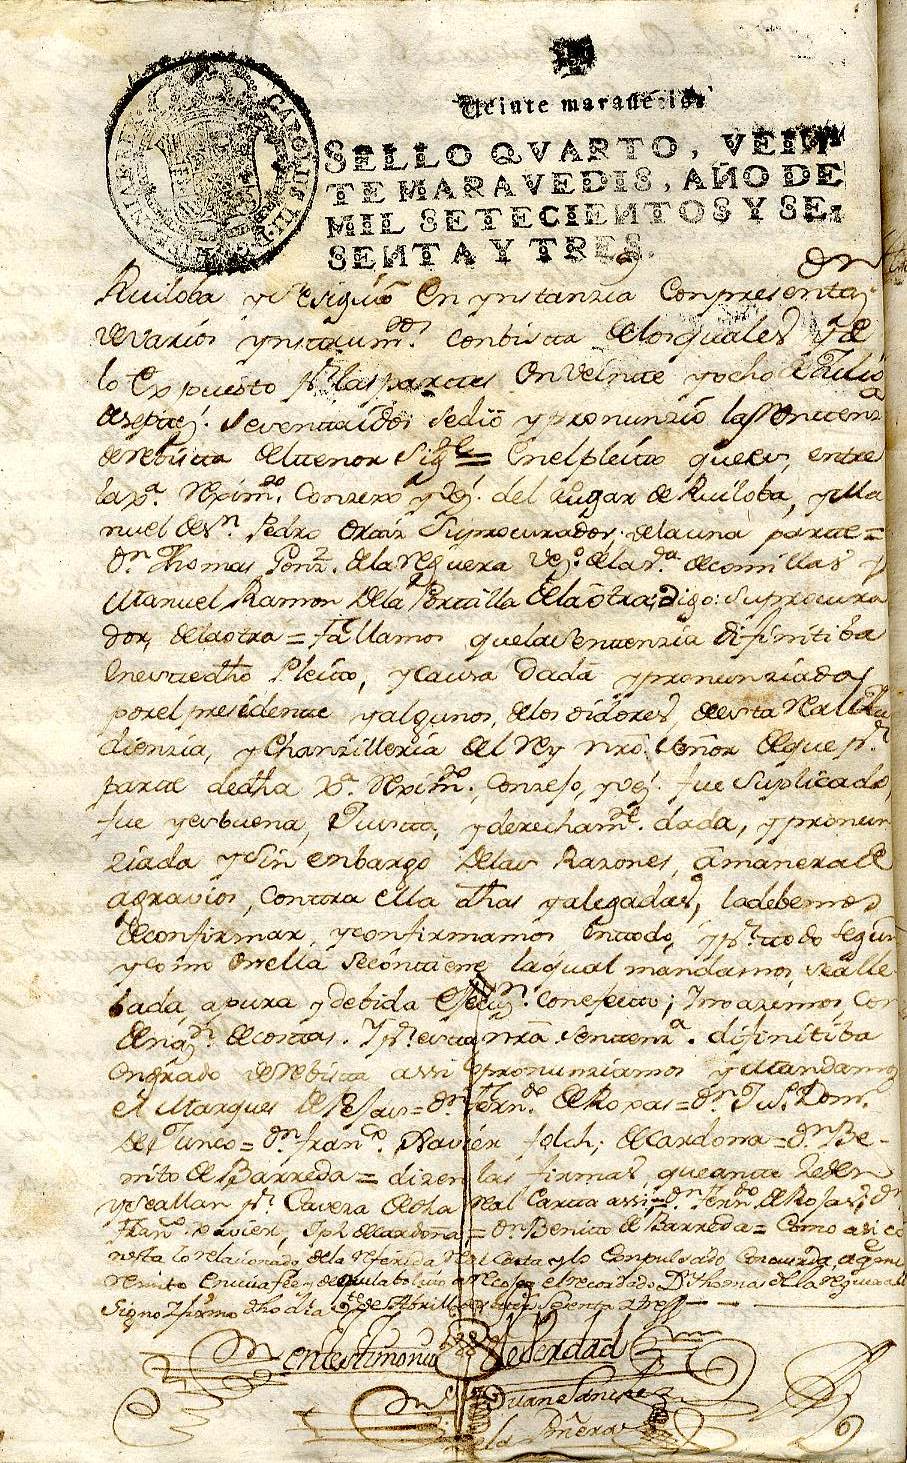 Veinte maravedis
SELLO QVARTO, VEIN-
TE MARAVEDIS, AÑO DE
MIL SETECIENTOS Y SE-
SENTA Y TRES.
CAROLUS III D G
Ruiloba y se siguió en ynstanzia con presentaz.
de varios ynstrum.tos con bista de los quales y de
lo expuesto pr. las partes en veinte y ocho de Julio
de setez. seventa i dos se dio y pronunzió la sentenz.a
de rebista del tenor sig.te = En el pleito que es, entre
la xa. Reximto. Conzexo y vez. del lugar de Ruiloba, y Ma
nuel de Sn. Pedro Ortiz su procurador de la una parte =
Dn. Thomas Gonz. de la Reguera vezo. de la va. de comillas y
Manuel Ramon de la Portilla de la otra, digo: su procura
dor, de la otra = fallamos que la sentenzia difinitiba
en este dho Pleito, y causa dada y pronunziada
por el presidente y algunos, de los oidores, de esta Real Au
dienzia, y Chanzilleria del Rey nro. Señor de que pr.
parte de dha xa. Reximto. Conzejo, y vez. fue suplicado,
fue y es buena, Justta, y derecham.te dada, y pronun
ziada y sin embargo de las Razones, a manera de
agravios, contra ella dhas y alegadas, la debemos
de confirmar, y confirmamos en todo, y pr. todo segun
y como en ella se contiene la qual mandamos, sea lle
bada, a pura y debida execuzn. con efecto; y no azemos con
denazn. de costas. Y pr. esta nra. sentenz.a difinitiba
en grado de rebista assi lo pronunziamos y Mandamos
el Marques de = Dn. Fernd.o de Roxas = Dn. Jul. Dom.
del Junco = Dn. Franco. Xavier folch; de Cardona = Dn. Be-
nito de Barreda = dizen las firmas, que ante zeden
y se allan pr. Cavera de dha real Carta assi = Dn. Fernd.o de Rojas; Dn.
Franco. Xavier, folch de Cardona = Dn. Benito de Barreda = Como asi co
nsta lo relacionado de la referida real Carta y lo Compulsado Concuerda, a que me
remito en cuia fee y de que la bolvio a recoger el recordado Dn. Thomas de la Reguera
Signo y firmo dho dia de Abrill de sesenta y tres
En testimonio de Verdad
Juan